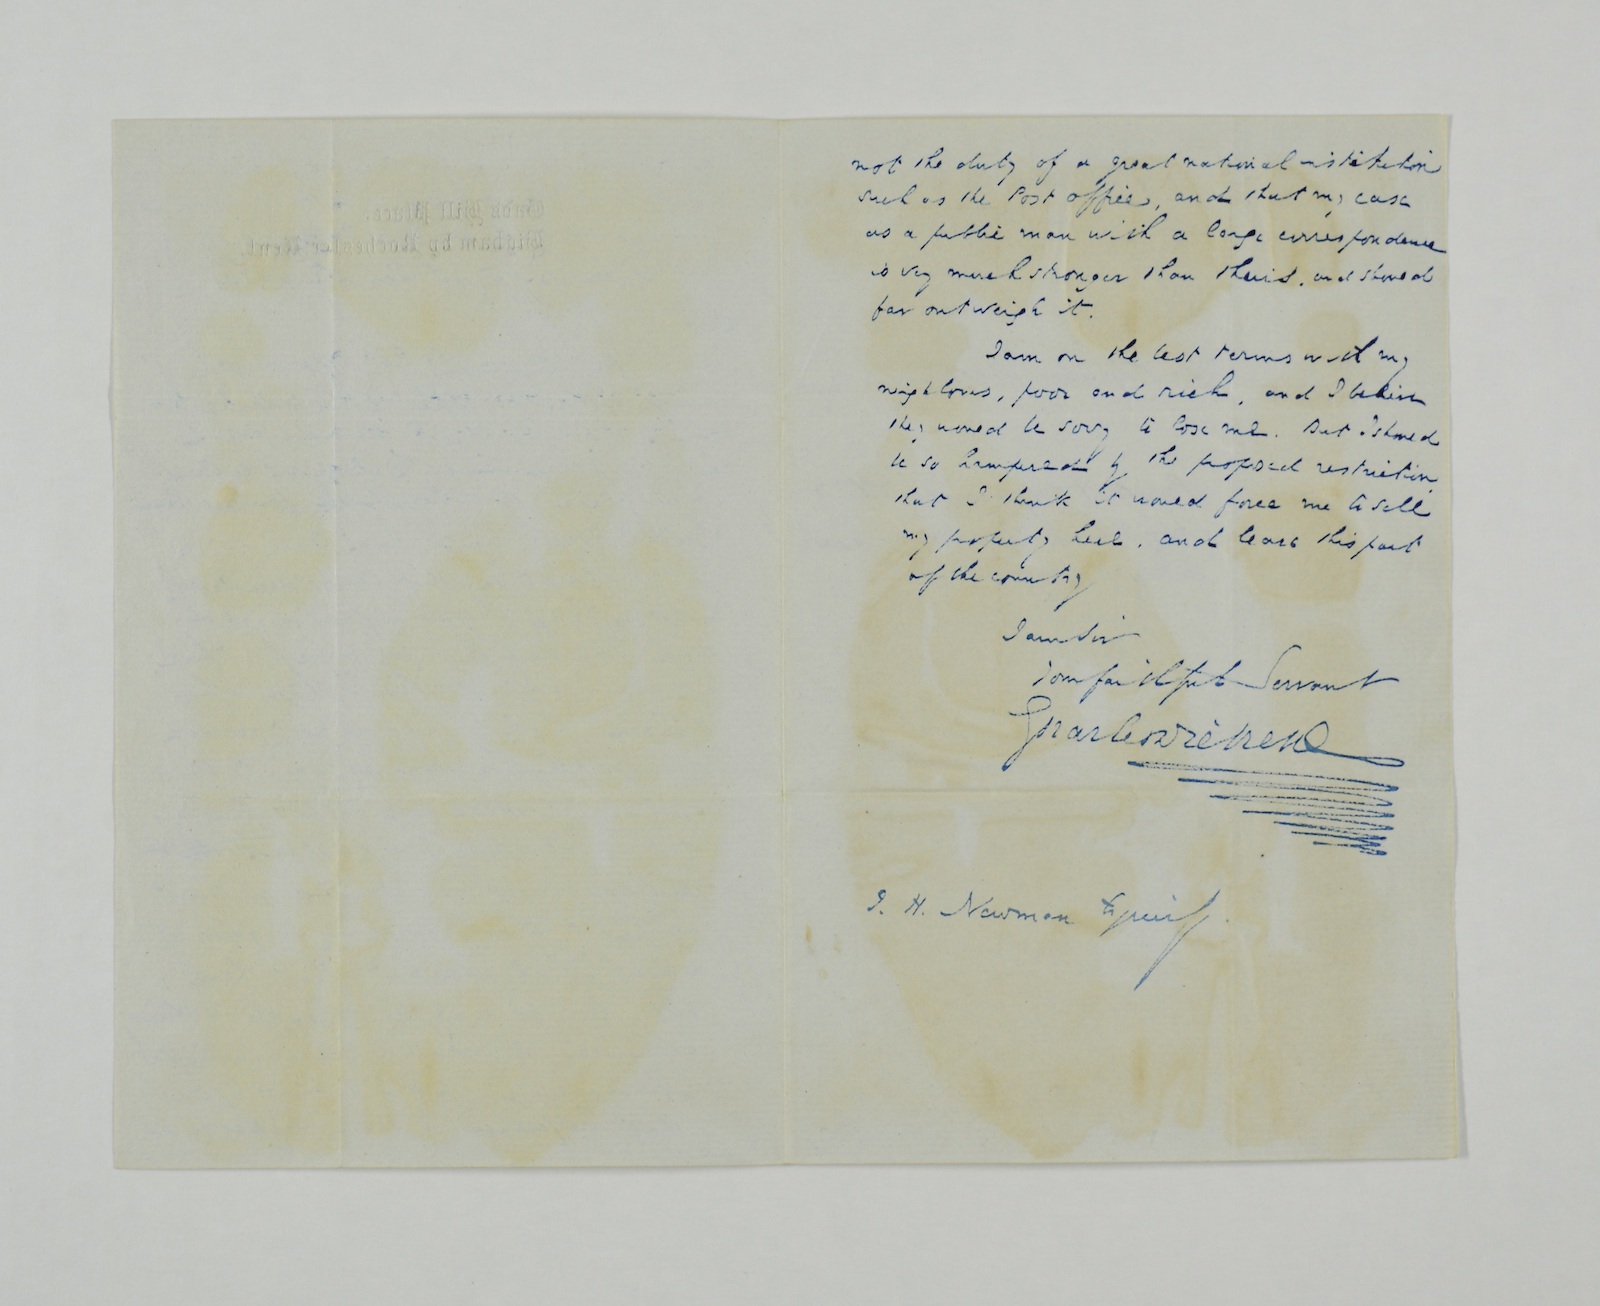 Gads Hill Place.
Higham by Rochester Kent.
not the duty of a great national institution
such as the Post office, and that my case
as a public man with a large correspondence
is very much stronger than theirs, and should
far outweigh it.
I am on the best terms with my
neighbours, poor and rich, and I believe
they would be sorry to lose me. But I should
be so hampered by the proposed restriction,
that I think it would force me to sell
my property here, and leave this part
of the country
I am Sir
Your faithful Servant
Charles Dickens
J. H. Newman Esquire.